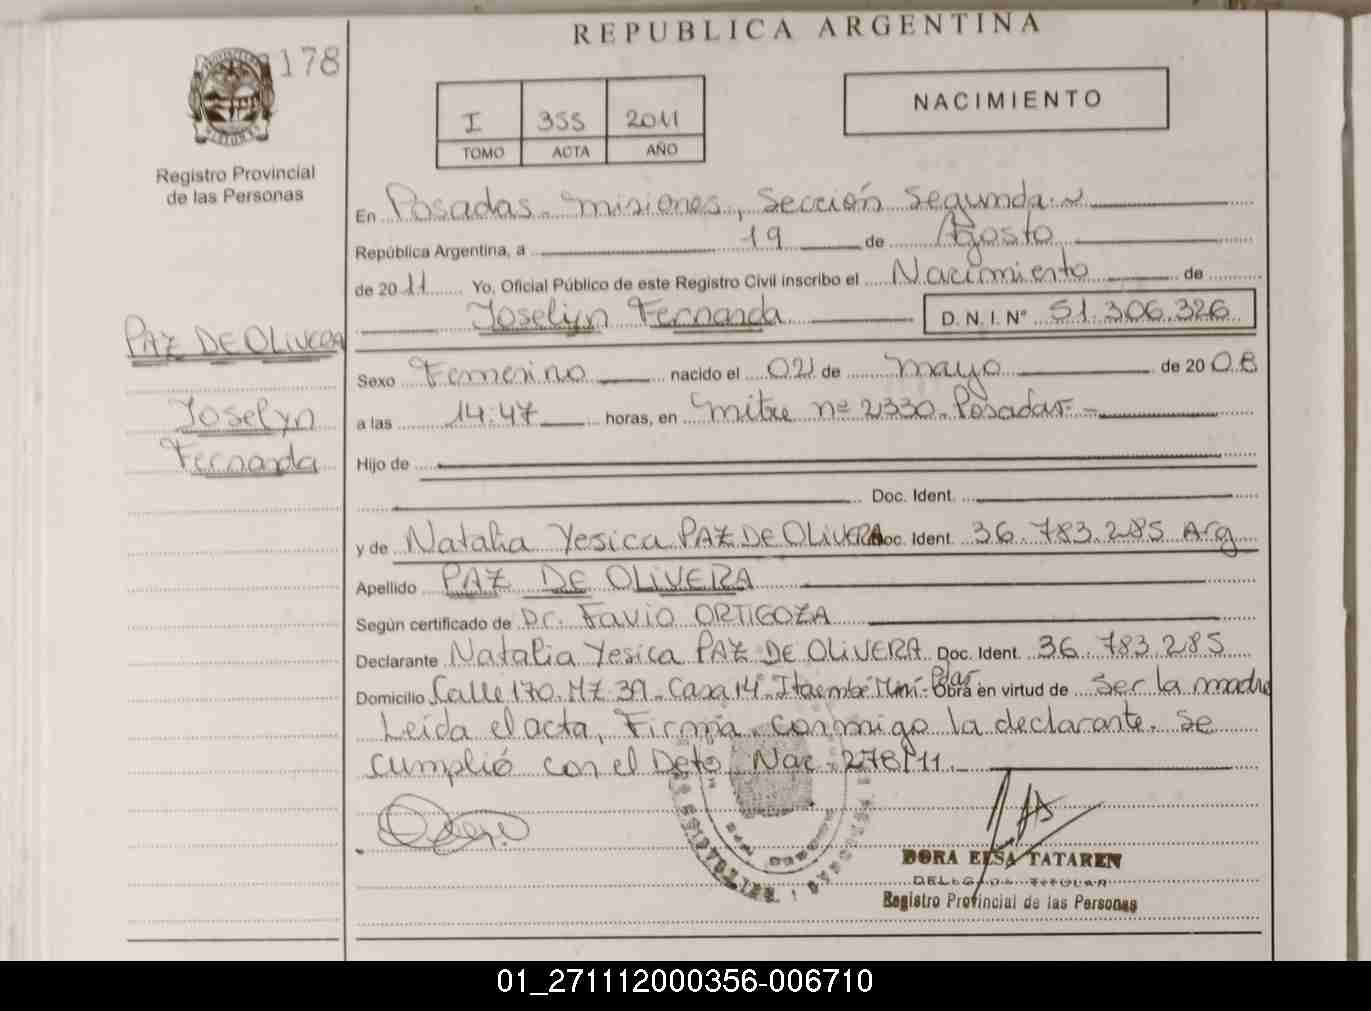 REPUBLICA ARGENTINA
178
NACIMIENTO
I 355 2011
TOMO ACTA AÑO
Registro Provincial
de las Personas
En Posadas. Misiones, Sección Segunda
República Argentina, a 19 de Agosto
de 2011 Yo, Oficial Público de este Registro Civil inscribo el Nacimiento de
Joselyn Fernanda D. N. I. N° 51.306.326
PAZ DE OLIVERA
Joselyn
Fernanda
Sexo Femenino nacido el 02 de mayo de 2008
a las 14:47 horas, en Mitre nº 2330. Posadas.-
Hijo de
Doc. Ident.
y de Natalia Yesica PAZ DE OLIVERA Doc. Ident. 36.783.285 Arg
Apellido PAZ DE OLIVERA
Según certificado de Dr. Favio ORTIGOZA
Declarante Natalia Yesica PAZ DE OLIVERA Doc. Ident. 36.783.285
Domicilio Calle 170. Mz. 39. Casa 14. Itaembé Miní- Pdas. Obra en virtud de Ser la madre
Leída el acta, Firma conmigo la declarante. Se
cumplió con el Deto. Nac. 278/11.
DORA ELSA TATAREN
DELEGADA TITULAR
Registro Provincial de las Personas
01_271112000356-006710